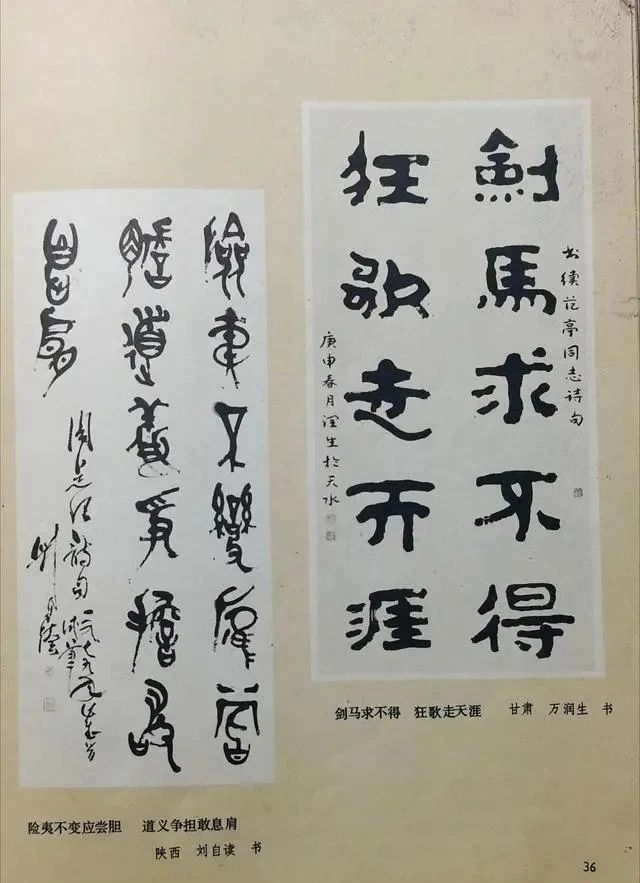 书续范亭同志诗句
劍馬求不得
狂歌走天涯
庚申春月润生於天水
剑马求不得 狂歌走天涯 甘肃 万润生 书
險夷不變應嘗
膽道義爭擔敢
息肩
周总理詩句一九七九年
险夷不变应尝胆 道义争担敢息肩
陕西 刘自读 书
36